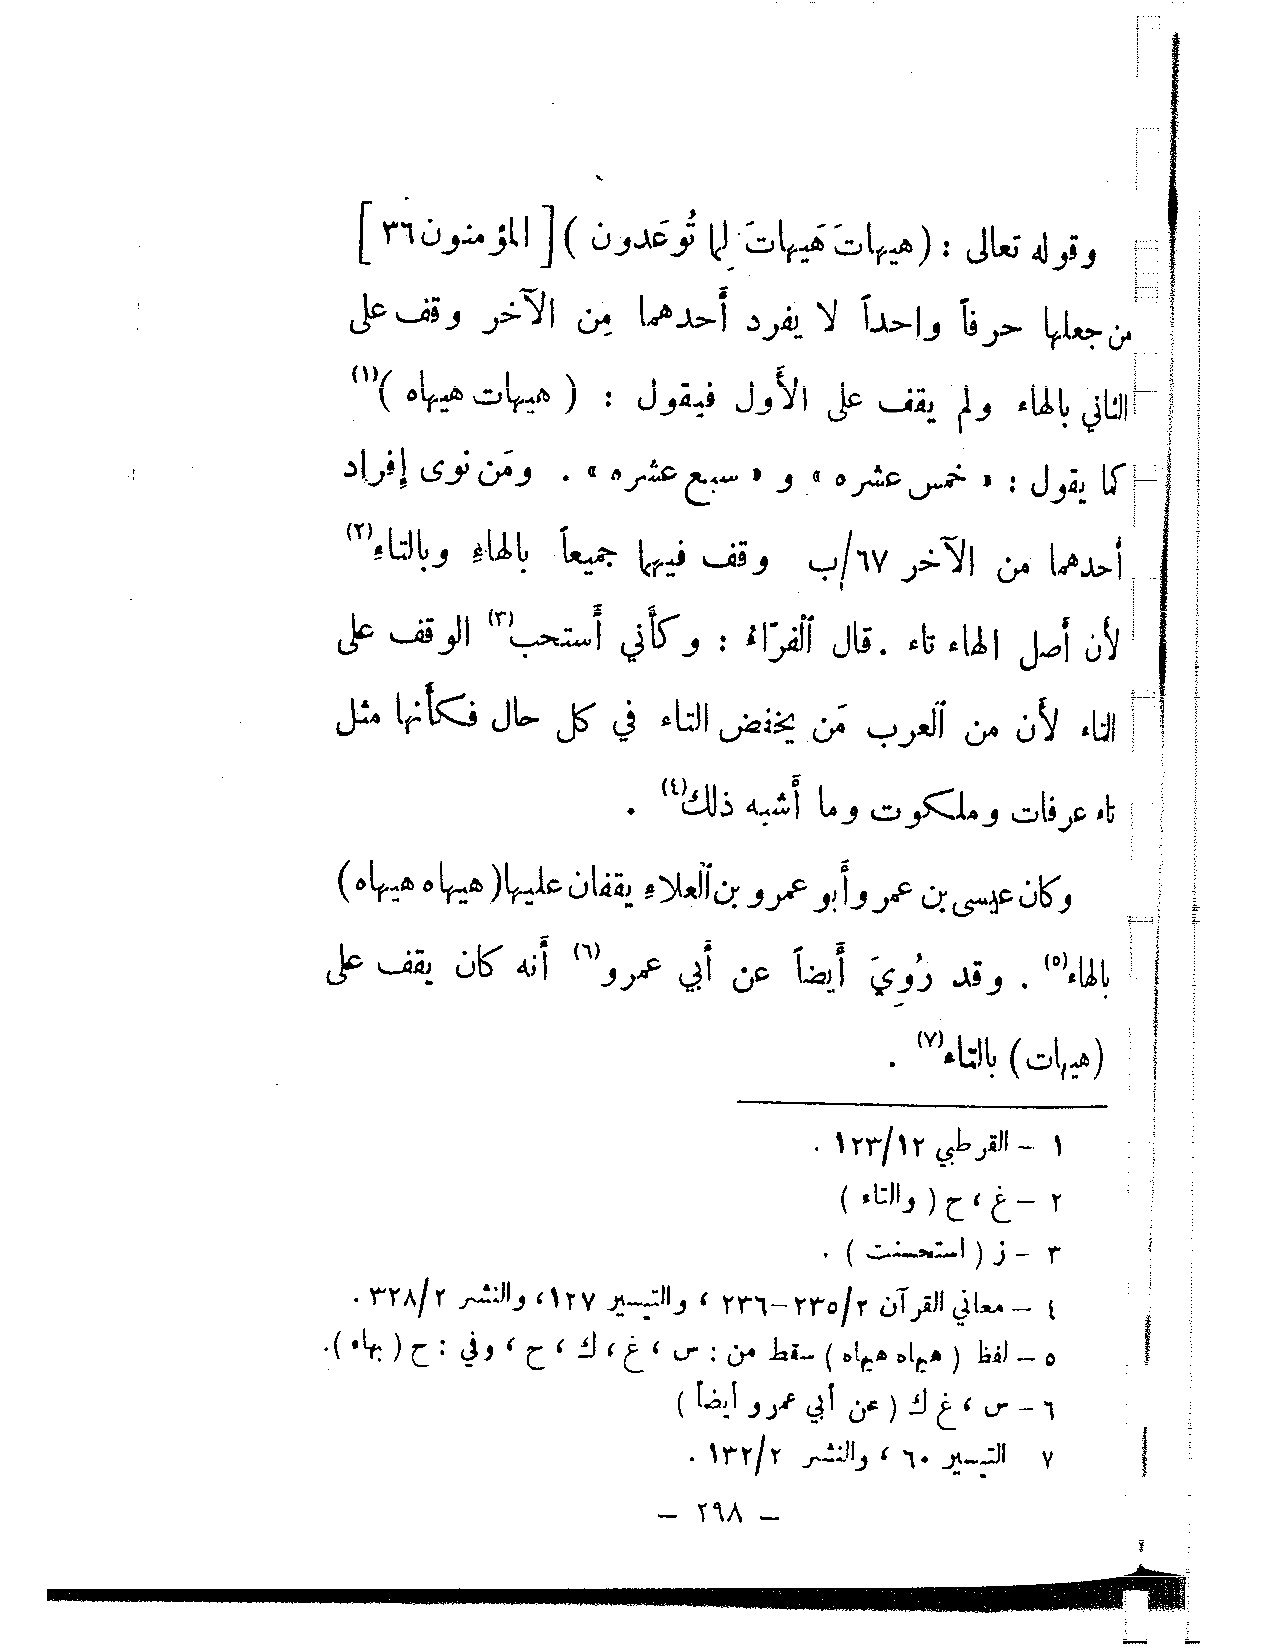 وقوله تعالى : (هيهاتَ هَيهاتَ لِما تُوعَدون ) [ المؤمنون ٣٦ ]
من جعلها حرفاً واحداً لا يفرد أَحدهما مِن الآخر وقف على
الثاني بالهاء ولم يقف على الأَول فيقول : ( هيهات هيهاه )(١)
كما يقول : « خمس عشره » و « سبع عشره » . ومَن نوى إفراد
أحدهما من الآخر ٦٧/ب وقف فيها جميعاً بالهاءِ وبالتاءِ(٢)
لأن أصل الهاء تاء . قال ٱلفرّاءُ : وكأَني أَستحب(٣) الوقف على
التاء لأَن من ٱلعرب مَن يخفض التاء في كل حال فكأَنها مثل
تاء عرفات وملكوت وما أَشبه ذلك(٤) .
وكان عيسى بن عمر وأَبو عمرو بن ٱلعلاءِ يقفان عليها (هيهاه هيهاه)
بالهاء(٥) . وقد رُوِيَ أَيضاً عن أَبي عمرو(٦) أَنه كان يقف على
(هيهات) بالتاء(٧) .
١ – القرطبي ١٢٣/١٢ .
٢ – غ ، ح ( والتاء )
٣ – ز ( استحسنت ) .
٤ – معاني القرآن ٢٣٥/٢–٢٣٦ ، والتيسير ١٢٧، والنشر ٣٢٨/٢ .
٥ – لفظ ( هيهاه هيهاه ) سقط من : س ، غ ، ك ، ح ، وفي : ح ( بهاء ).
٦ – س ، غ ك ( عن أبي عمرو أيضاً )
٧ التيسير ٦٠ ، والنشر ١٣٢/٢ .
– ٢٩٨ –